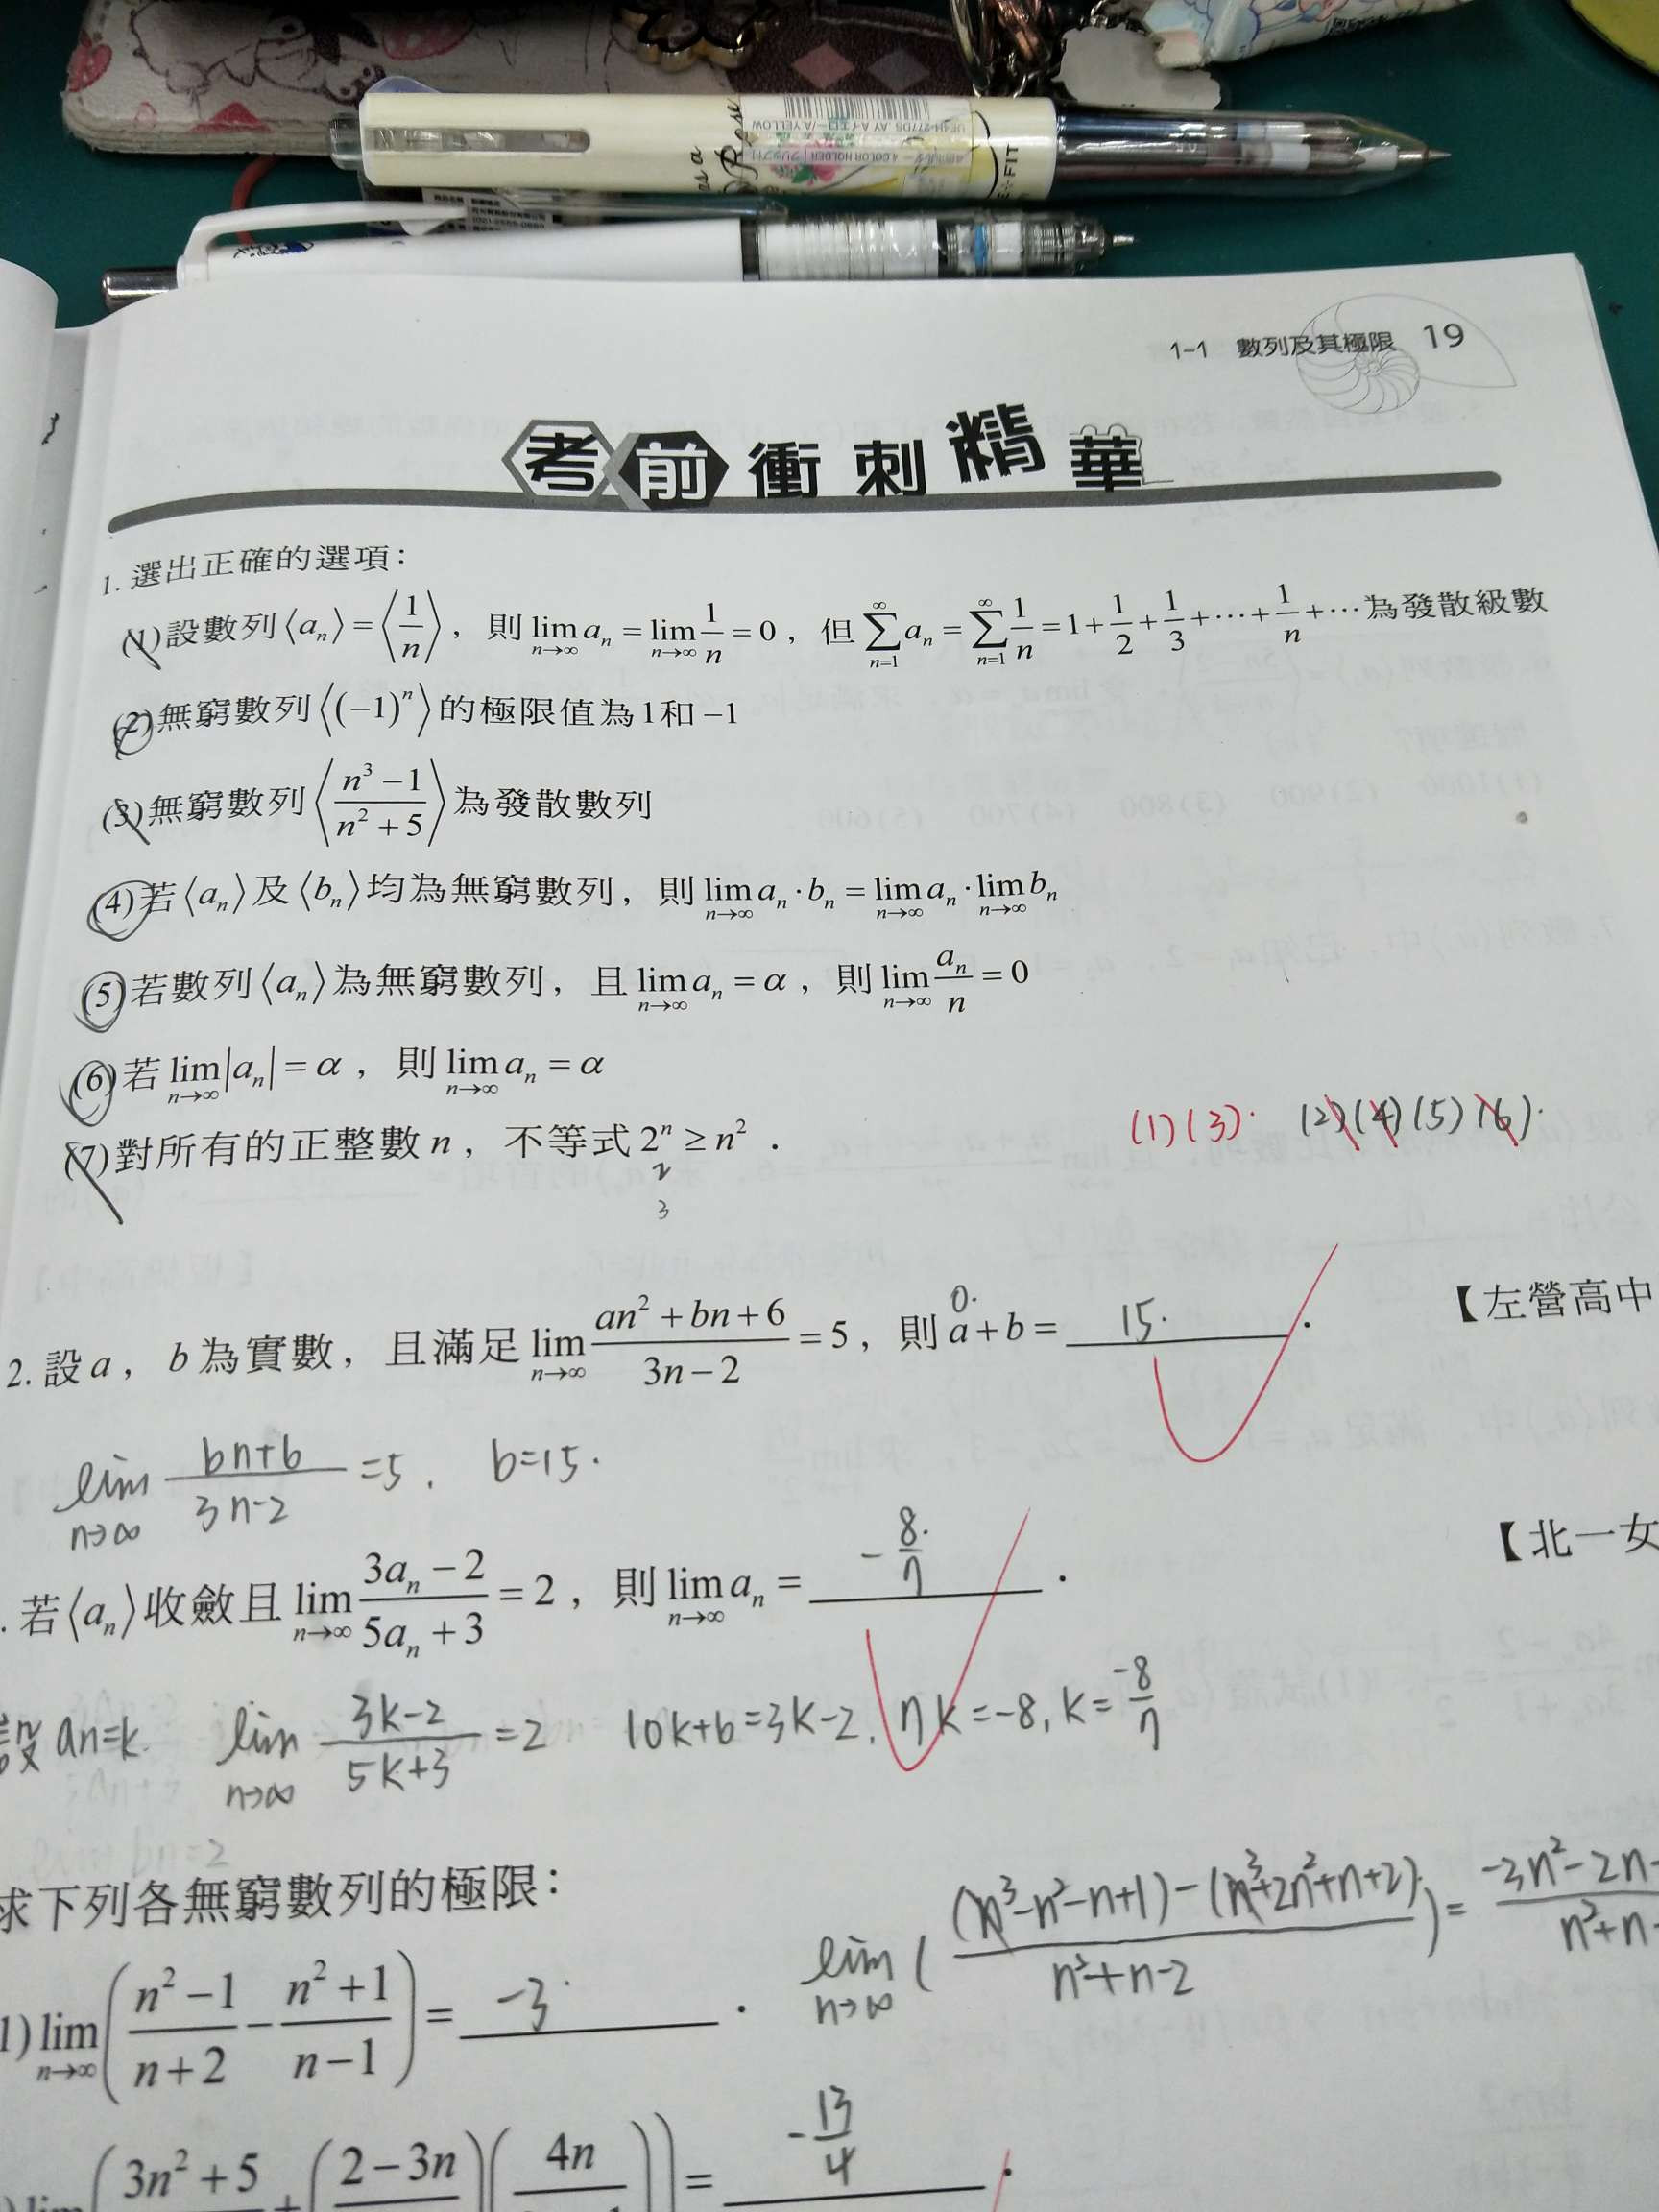 UE4H-277DS .AY Aイエロー/A.YELLOW
1-1 數列及其極限 19
考前衝刺精華
1. 選出正確的選項：
(1)設數列⟨aₙ⟩=⟨1/n⟩，則 lim_{n→∞} aₙ = lim_{n→∞} 1/n = 0，但 ∑_{n=1}^{∞} aₙ = ∑_{n=1}^{∞} 1/n = 1+1/2+1/3+⋯+1/n+⋯為發散級數
(2)無窮數列⟨(−1)ⁿ⟩的極限值為1和−1
(3)無窮數列⟨(n³−1)/(n²+5)⟩為發散數列
(4)若⟨aₙ⟩及⟨bₙ⟩均為無窮數列，則 lim_{n→∞} aₙ·bₙ = lim_{n→∞} aₙ · lim_{n→∞} bₙ
(5)若數列⟨aₙ⟩為無窮數列，且 lim_{n→∞} aₙ = α，則 lim_{n→∞} aₙ/n = 0
(6)若 lim_{n→∞} |aₙ| = α，則 lim_{n→∞} aₙ = α
(1)(3). (2)(4)(5)(6).
(7)對所有的正整數 n，不等式 2ⁿ ≥ n²．
2
3
0.
2. 設 a，b 為實數，且滿足 lim_{n→∞} (an²+bn+6)/(3n−2) = 5，則 a+b = 15. ． 【左營高中
lim_{n→∞} (bn+6)/(3n-2) =5. b=15.
. 若⟨aₙ⟩收斂且 lim_{n→∞} (3aₙ−2)/(5aₙ+3) = 2，則 lim_{n→∞} aₙ = -8/7 ． 【北一女
設 an=k. lim_{n→∞} (3k-2)/(5k+3) =2 10k+6=3k-2, 7k=-8, k=-8/7
求下列各無窮數列的極限：
1) lim_{n→∞} ((n²−1)/(n+2) − (n²+1)/(n−1)) = -3 ． lim_{n→∞} (((n³-n²-n+1)-(n³+2n²+n+2))/(n²+n-2)) = (-3n²-2n-)/(n²+n-
) lim (3n²+5 + (2−3n)(4n)) = -13/4 ．